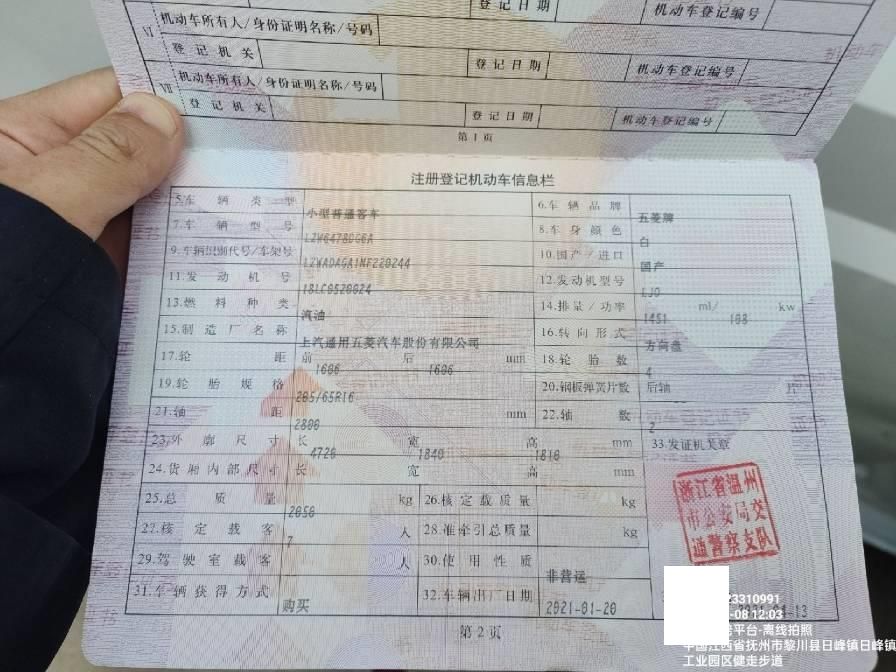 登记日期 机动车登记编号
Ⅵ 机动车所有人/身份证明名称/号码
登记机关 登记日期 机动车登记编号
Ⅶ 机动车所有人/身份证明名称/号码
登记机关 登记日期 机动车登记编号
第1页
注册登记机动车信息栏
5.车辆类型 小型普通客车 6.车辆品牌 五菱牌
7.车辆型号 8.车身颜色 白
9.车辆识别代号/车架号 LZWADAGA1MF220244 10.国产/进口 国产
11.发动机号 12.发动机型号 LJO
13.燃料种类 汽油 14.排量/功率 1451 ml/ 108 kw
15.制造厂名称 上汽通用五菱汽车股份有限公司 16.转向形式 方向盘
17.轮距 前 1606 后 1606 mm 18.轮胎数 4
19.轮胎规格 205/65R16 20.钢板弹簧片数 后轴 片
21.轴距 2800 mm 22.轴数 2
23.外廓尺寸 长 4720 宽 1840 高 1810 mm 33.发证机关章
24.货厢内部尺寸 长 宽 高 mm
25.总质量 2050 kg 26.核定载质量 kg
27.核定载客 7 人 28.准牵引总质量 kg
29.驾驶室载客 人 30.使用性质 非营运
31.车辆获得方式 购买 32.车辆出厂日期 2021-01-20
浙江省温州
市公安局交
通警察支队
第2页
23310991
-08 12:03
平台-离线拍照
中国江西省抚州市黎川县日峰镇日峰镇
工业园区健走步道